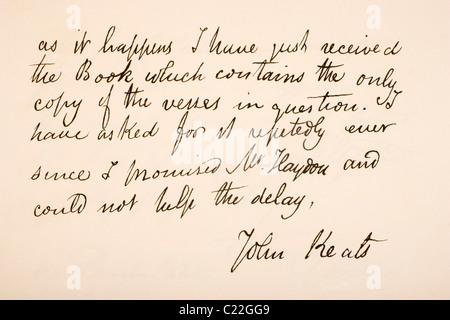 as it happens I have just received
the Book which contains the only
copy of the verses in question. I
have asked for it repetedly ever
since I promised Mr Haydon and
could not help the delay.
John Keats
alamy
alamy
Image ID: C22GG9
www.alamy.com